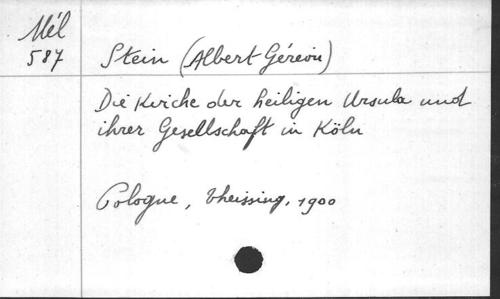 Mél
587
Stein (Albert Géréon)
Die Kirche der heiligen Ursula und
ihrer Gesellschaft in Köln
Cologne, Theissing, 1900